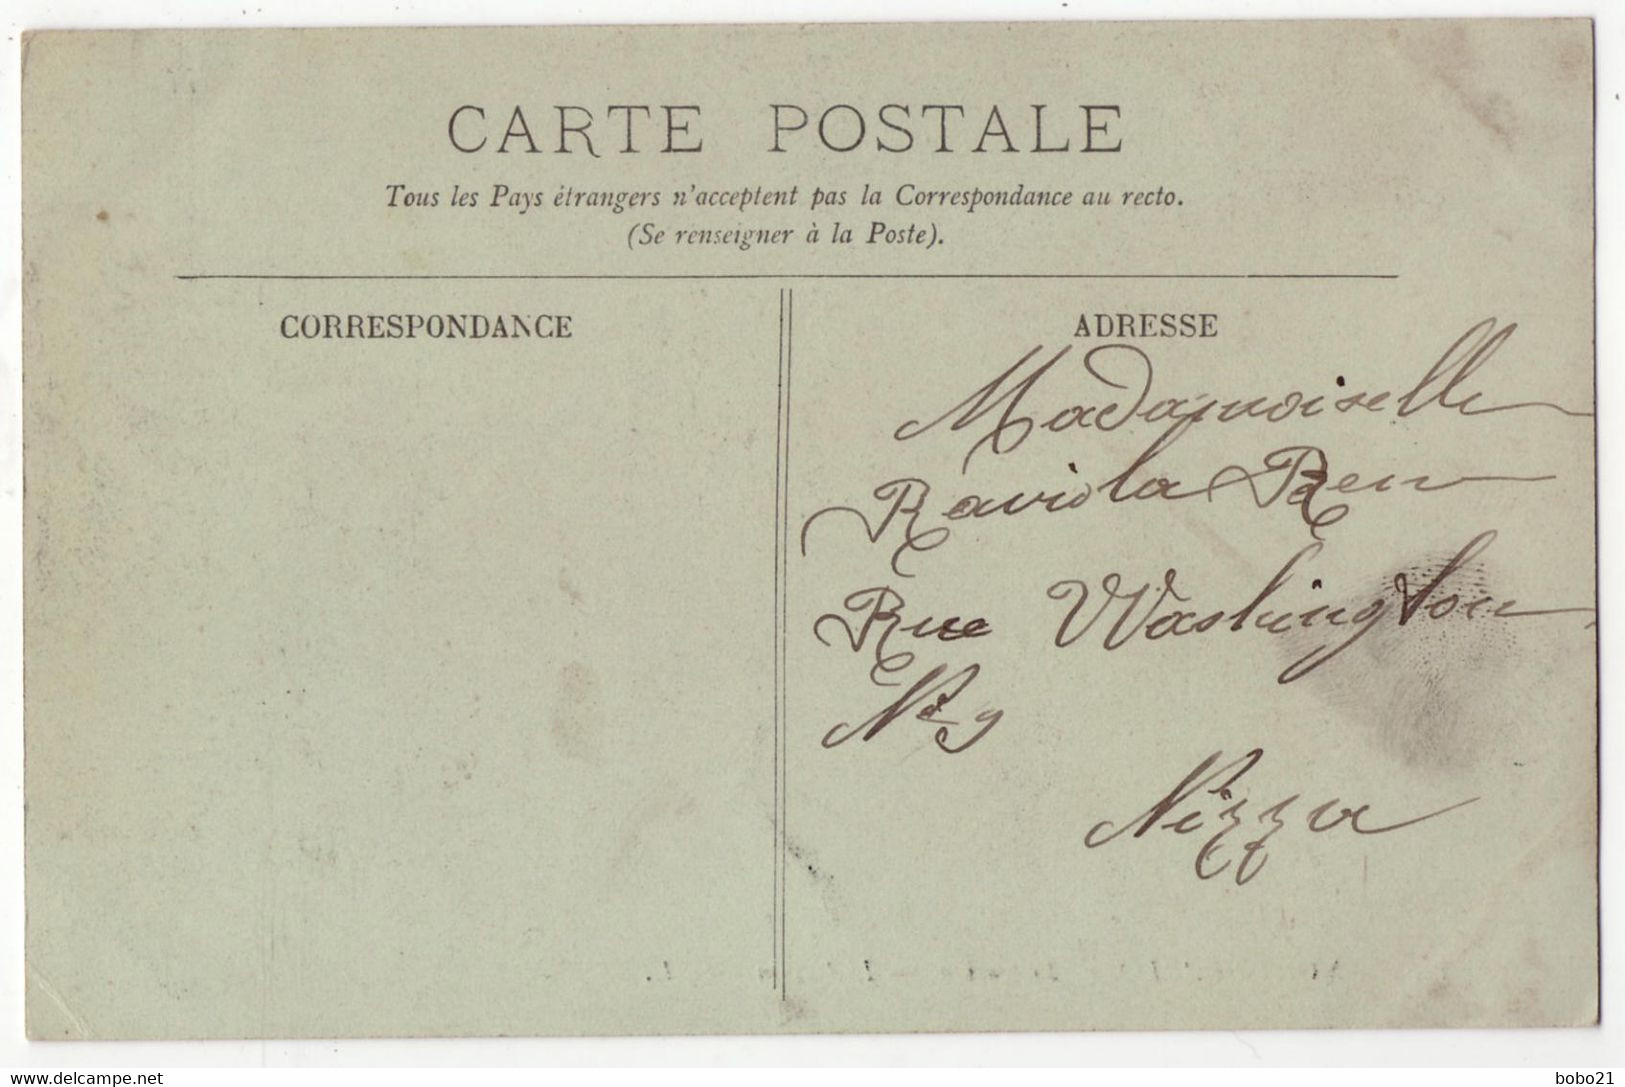 CARTE POSTALE
Tous les Pays étrangers n'acceptent pas la Correspondance au recto.
(Se renseigner à la Poste).
CORRESPONDANCE
ADRESSE
Mademoiselle
Raviola Ren
Rue Washington
No 9
Nizza
www.delcampe.net
bobo21